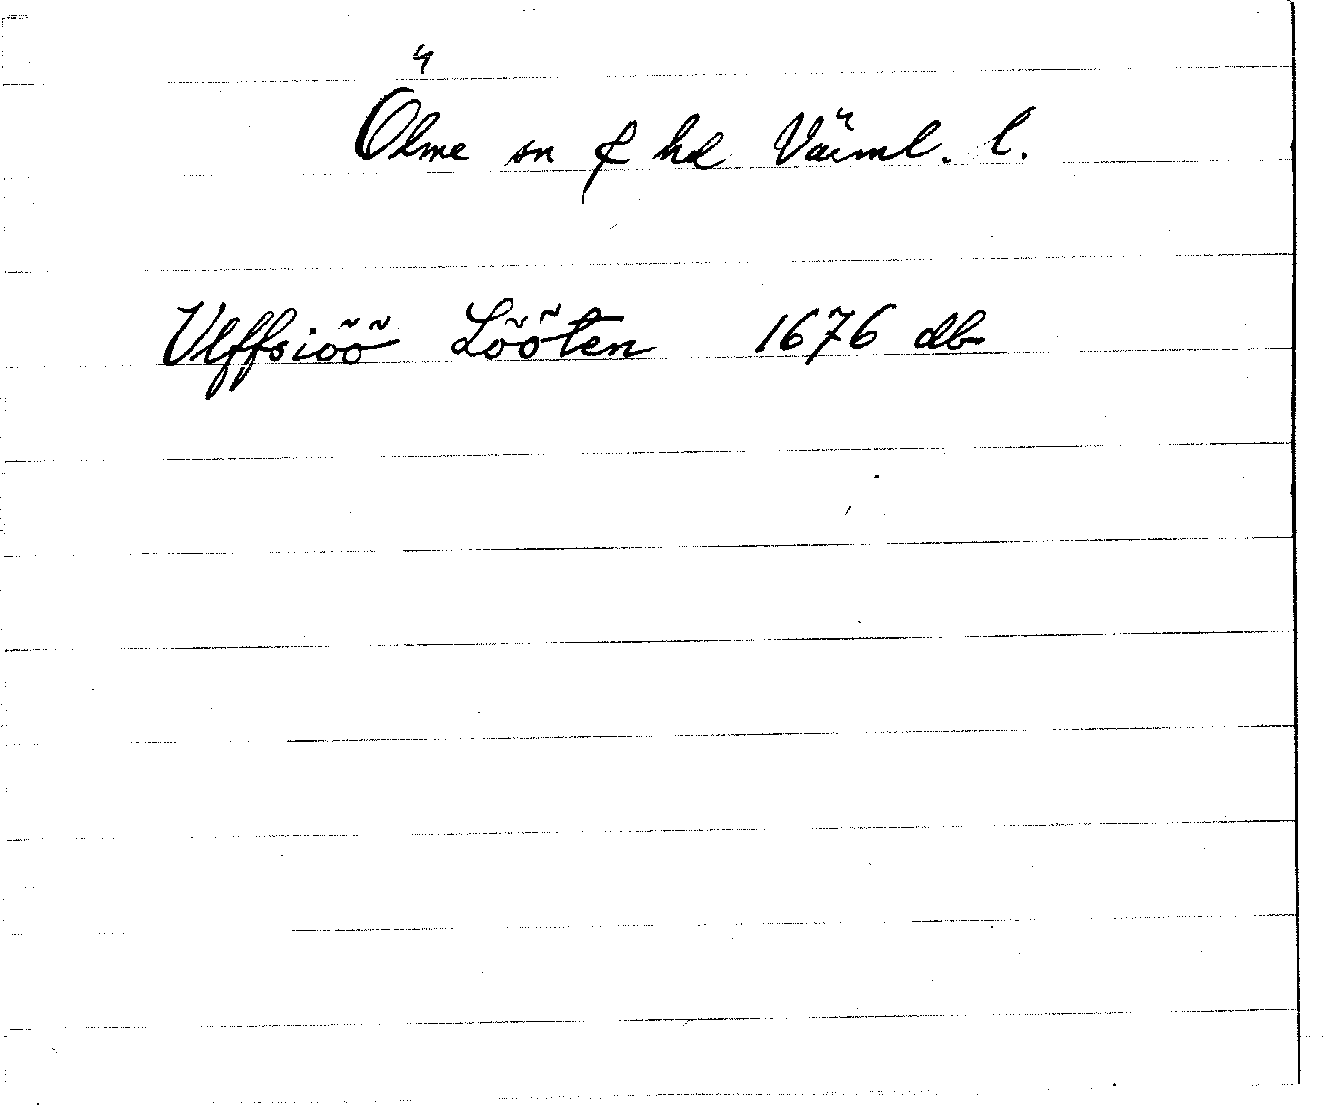 Ölme sn & hd Värml. l.
Ulffsiöö Lööten 1676 db